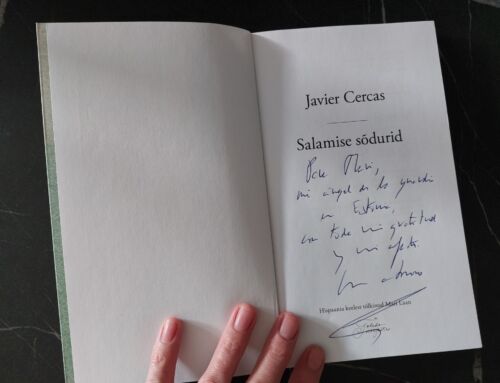 Javier Cercas
Salamise sõdurid
Para Mari,
mi ángel de la guarda
en Estonia,
con toda mi gratitud
y mi afecto.
Un abrazo
Hispaania keelest tõlkinud Mari Laan